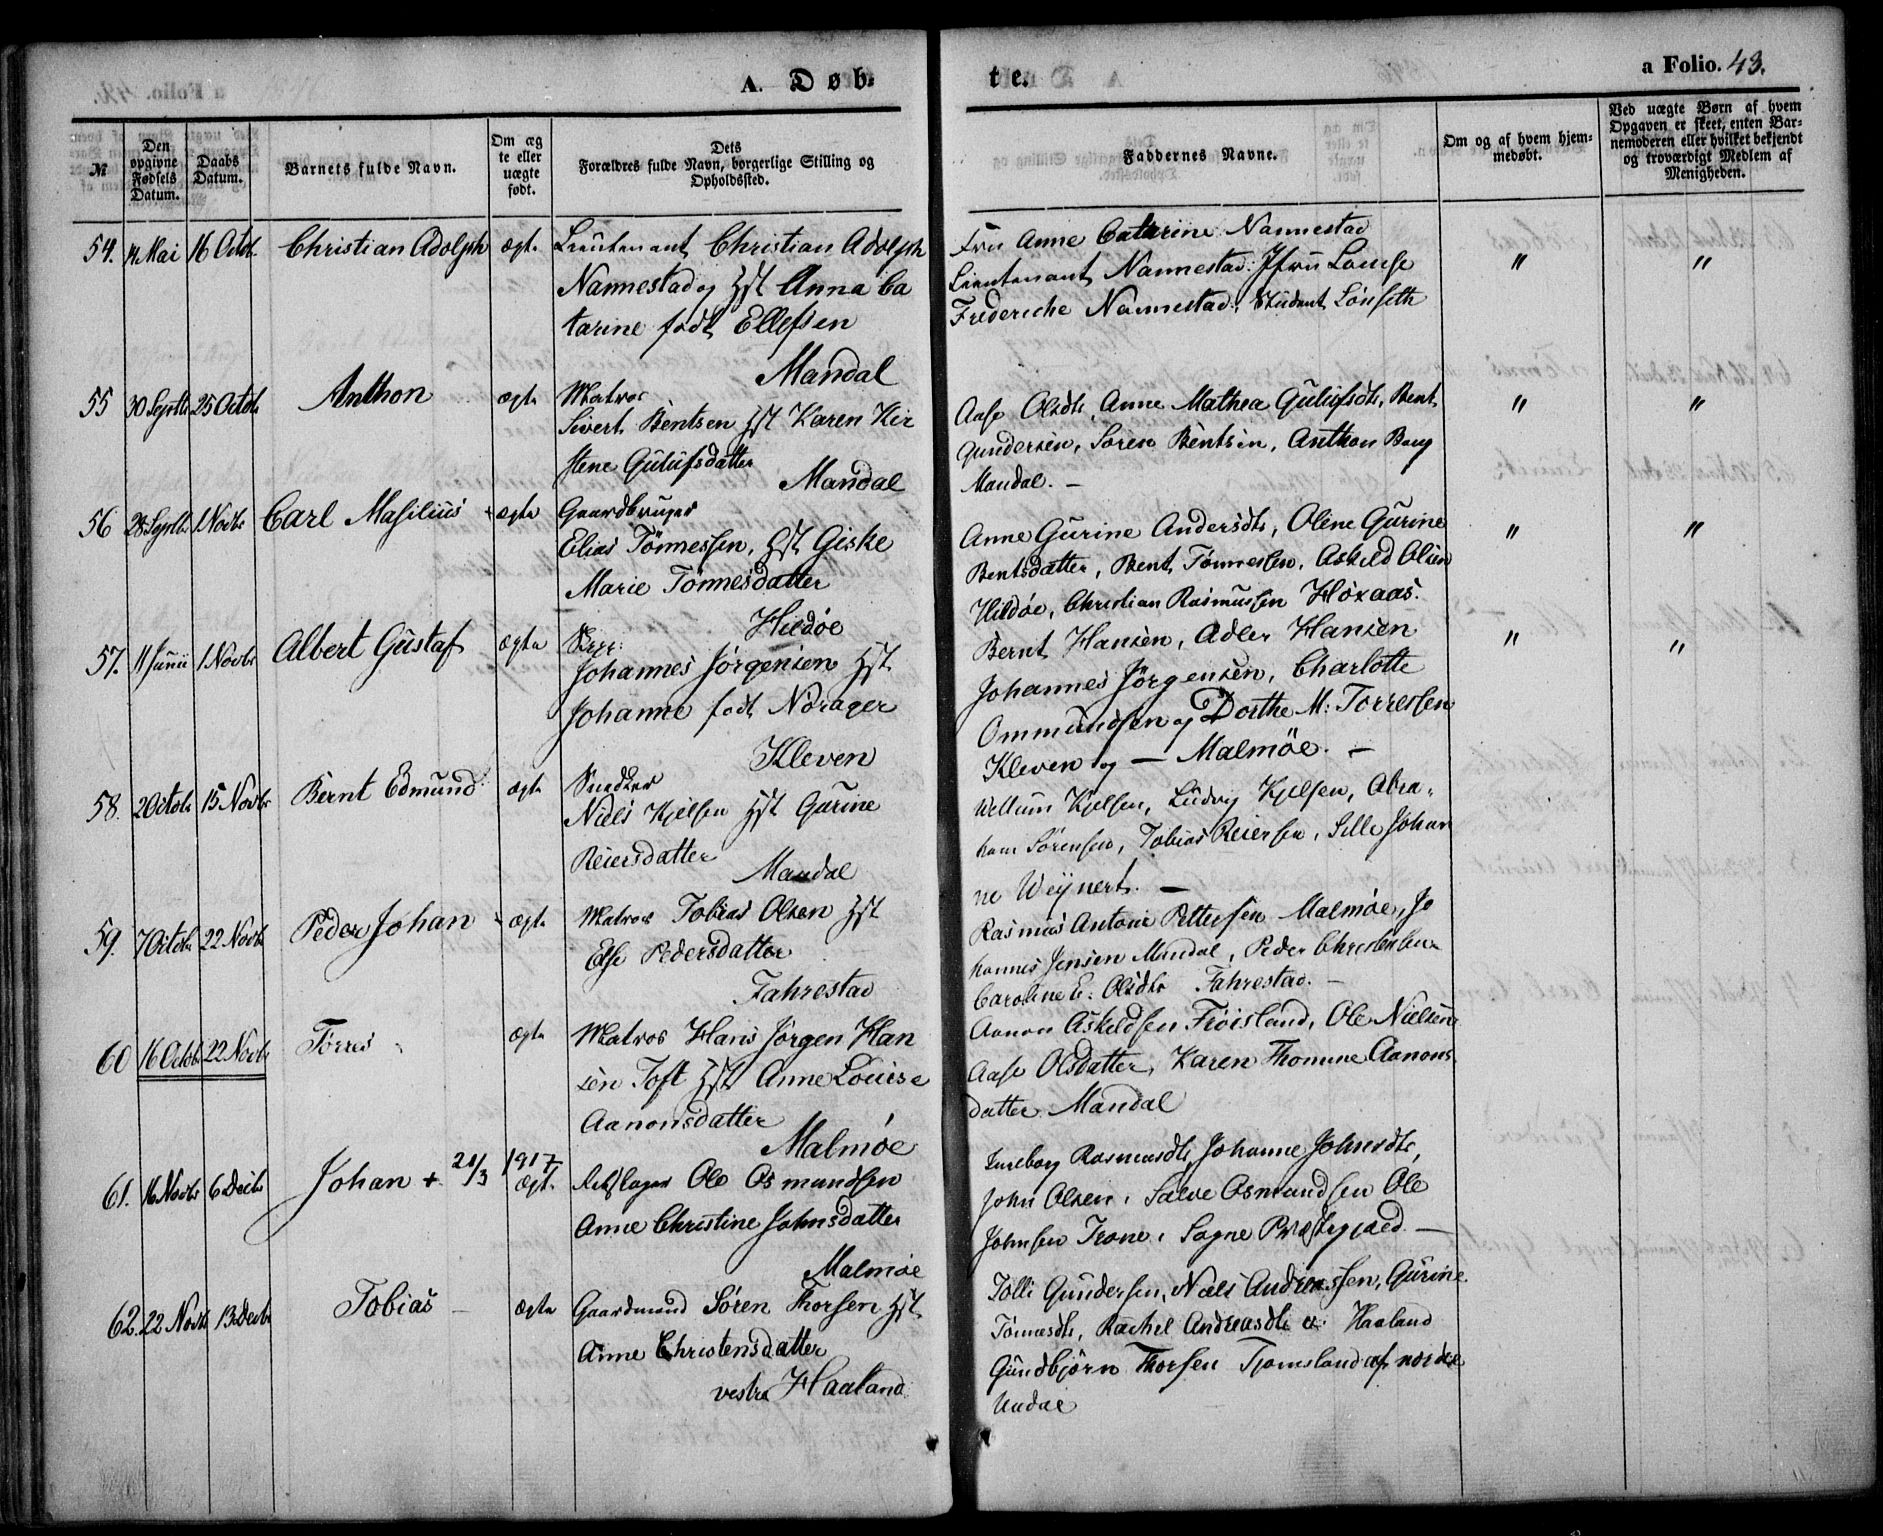 A. Døb=
te.
a Folio. 43.
№
Den opgivne Fødsels Datum.
Daabs Datum.
Barnets fulde Navn.
Om æg te eller uægte født.
Dets Forældres fulde Navn, borgerlige Stilling og Opholdssted.
Faddernes Navne.
Om og af hvem hjem= medøbt.
Ved uægte Børn af hvem Opgaven er skeet, enten Bar= nemoderen eller hvilket bekjendt og troværdigt Medlem af Menigheden.
54. 14 Mai 16 Octob. Christian Adolph ægte Lieutenant Christian Adolph
Nannestad og Hst Anna Ca
tarine født Ellefsen
Mandal
Fru Anne Catarine Nannestad
Lieutenant Nannestad. Jfru Louise
Frederiche Nannestad. Student Lönseth
" "
55 30 Septbr 25 Octobr Anthon ægte Matros
Sivert Bentsen Hst Karen Kir
stene Gulufsdatter
Mandal
Aase Olsdtr, Anne Mathea Gulufsdtr, Bent
Gundersen, Søren Bentsen, Anthon Berg
Mandal. —
" "
56 28 Septbr 1 Novbr Carl Masilius ægte Gaardbruger
Elias Tönnessen, Hst Giske
Marie Tönnesdatter
Hildøe
Anne Gurine Andersdtr, Oline Gurine
Bentsdatter, Bent Tönnessen, Askild Olsen
Hildøe, Christian Rasmussen Höxaas.
" "
57. 11 Junii 1 Novbr Albert Gustaf ægte
Johannes Jörgensen Hst
Johanne født Norager
Kleven
Bernt Hansen, Adler Hansen
Johannes Jörgensen, Charlotte
Ommundsen og Dorthe M: Torressen
Kleven og — Malmöe. —
" "
58. 2 Octobr 15 Novbr Bernt Edmund ægte Snedker
Niels Kjelsen Hst Gurine
Reiersdatter
Mandal
Wellum Kjelsen, Ludvig Kjelsen, Abra=
ham Sörensen, Tobias Reiersen, Sille Johan
ne Weynert. —
59. 7 Octobr 22 Novbr Peder Johan ægte Matros Tobias Olsen Hst
Else Pedersdatter
Fahrestad
Rasmus Antoni Pettersen Malmøe, Jo
hannes Jensen Mandal, Peder Christensen
Caroline E. Olsdtr Fahrestad. —
60 16 Octobr 22 Novbr Törres ægte Matros Hans Jørgen Han
sen Toft Hst Anne Louise
Aanonsdatter
Malmøe
Aanon Askildsen Fröisland, Ole Nielsen
Aase Olsdatter, Karen Thomine Aanons
datter Mandal
61. 16 Novbr 6 Decbr Johan + 21/3 1917 ægte. Rebslager Ole Osmundsen
Anne Christine Johnsdatter
Malmøe
Ingeborg Rasmusdtr, Johanne Johnsdtr,
John Olsen, Salve Osmundsen Ole
Johnsen Trone, Sogne Præstegjæld —
62. 22 Novbr 13 Decbr Tobias ægte Gaardmand Sören Thorsen Hst
Anne Christensdatter
vestre Haaland
Tolli Gundersen, Niels Andreassen, Gurine
Tönnesdtr, Rachel Andreasdtr v. Haaland
Gundbjörn Thorsen Tjomsland af nordre
Undal